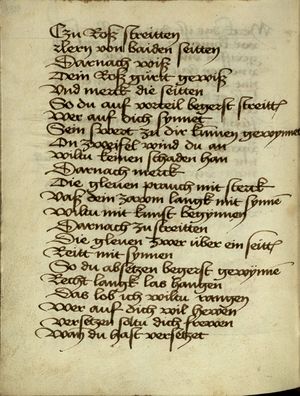 Czu Roß streitten
zlern von baiden seitten
Darnach wiß
Dein Roß gürtt gewiß
Vnd merck die seitten
So du auf vorteil begerst streittn
Wer auf dich synnet
Sein swert zu dir künnen gewynnet
On zweifel wind du an
wiltu keinen schaden han
Darnach merck
Die gleuen prauch mit sterck
Vaß dein zawm langk mit synne
wiltu mit kunst begynnen
Darnach zu streitten
Die gleuen zwer über ein seittn
Reitt mit synnen
So du absetzen begerst gewynne
Recht langk las hangen
Das lob ich wiltu rangen
Wer auf dich wil hewen
versetzen soltu dich frewen
Wan du hast versetzet